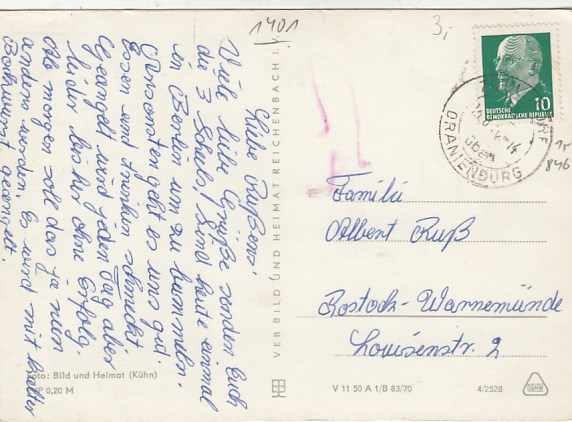 1401
3,-
Liebe Rußens!
Viele liebe Grüße senden Euch
die 3 Schulz! Sind heute einmal
in Berlin um zu bummeln.
Ansonsten geht es uns gut.
Essen und Trinken schmeckt.
Geangelt wird jeden Tag aber
leider bisher ohne Erfolg.
Ab morgen soll das ja nun
anders werden. Es wird mit
Bockwurst geangelt.
Foto: Bild und Heimat (Kühn)
0,20 M
VEB BILD UND HEIMAT REICHENBACH I. V.
10
DEUTSCHE
DEMOKRATISCHE REPUBLIK
DORF
über
ORANIENBURG
15
846
Familie
Albert Ruß
Rostock-Warnemünde
Louisenstr. 2
V 11 50 A 1/B 83/70
4/2528